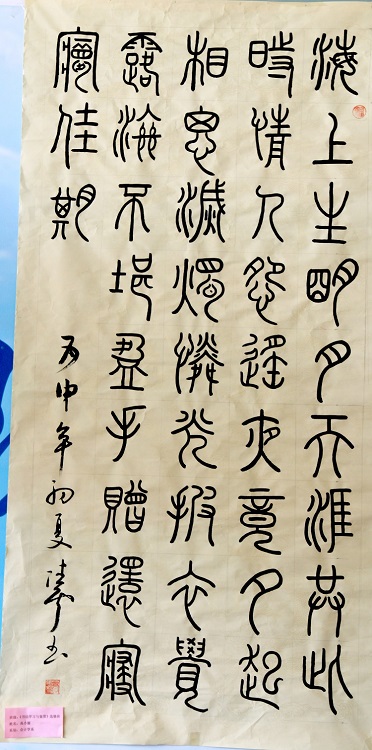 海上生明月天涯共此
時情人怨遙夜竟夕起
相思滅燭憐光披衣覺
露海不堪盈手贈還寢
夢佳期
丙申年初夏書